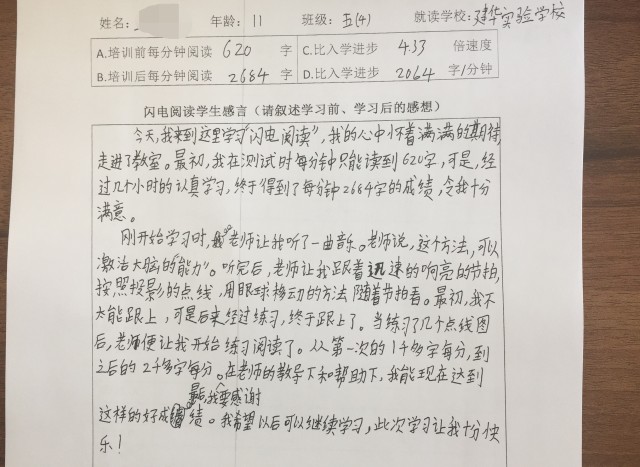 姓名: 年龄: 11 班级: 五(4) 就读学校: 建华实验学校
A.培训前每分钟阅读 620 字 C.比入学进步 4.33 倍速度
B.培训后每分钟阅读 2684 字 D.比入学进步 2064 字/分钟
闪电阅读学生感言（请叙述学习前、学习后的感想）
今天,我来到这里学习"闪电阅读",我的心中怀着满满的期待,
走进了教室。最初,我在测试时每分钟只能读到620字,可是,经
过几十小时的认真学习,终于得到了每分钟2684字的成绩,令我十分
满意。
刚开始学习时,老师让我听了一曲音乐。老师说,这个方法,可以
激活大脑的"能力"。听完后,老师让我跟着迅速的响亮的节拍,
按照投影的点线,用眼球移动的方法随着节拍看。最初,我不
太能跟上,可是后来经过练习,终于跟上了。当练习了几个点线图
后,老师便让我开始练习阅读了。从第一次的1千多字每分,到
之后的2千多字每分。在老师的教导下和帮助下,我能现在达到
最后我要感谢
这样的好成绩。我希望以后可以继续学习,此次学习让我十分快
乐!